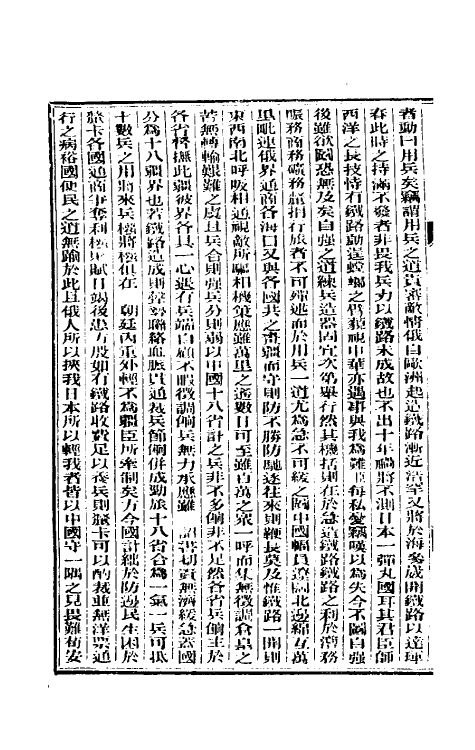 者動曰用兵矣竊謂用兵之道貴審敵情俄自歐洲起造鐵路漸近浩罕又將於海參崴開鐵路以達琿
春此時之持滿不發者非畏我兵力以鐵路未成故也不出十年禍將不測日本一彈丸國耳其君臣師
西洋之長技恃有鐵路動逞螳螂之臂藐視中華亦遇事與我為難臣每私憂竊嘆以為失今不圖自強
後雖欲圖恐無及矣自强之道練兵造器固宜次第舉行然其機括則在於急造鐵路鐵路之利於漕務
賑務商務礦務釐捐行旅者不可殫述而於用兵一道尤為急不可緩之圖中國幅員遼闊北邊綿亙萬
里毗連俄界通商各海口又與各國共之畫疆而守則防不勝防馳逐往來則鞭長莫及惟鐵路一開則
東西南北呼吸相通視敵所驅相機策應雖萬里之遙數日可至雖百萬之衆一呼而集無徵調倉皇之
苦無轉輸艱難之虞且兵合則强兵分則弱以中國十八省計之兵非不多餉非不足然各省兵餉主於
各省督撫此疆彼界各具一心遇有兵端自顧不暇徵調餉兵無力承應雖　詔書切責無濟緩急蓋國
分為十八疆界也若鐵路造成則聲勢聯絡血脈貫通裁兵節餉併成勁旅十八省合為一氣一兵可抵
十數兵之用將來兵權將權俱在　朝廷內重外輕不為疆臣所牽制矣方今國計絀於防邊民生困於
釐卡各國通商爭奪利權財賦日竭後患方殷如有鐵路收費足以養兵則釐卡可以酌裁並無洋票通
行之病裕國便民之道無踰於此且俄人所以挾我日本所以輕我者皆以中國守一隅之見畏難茍安